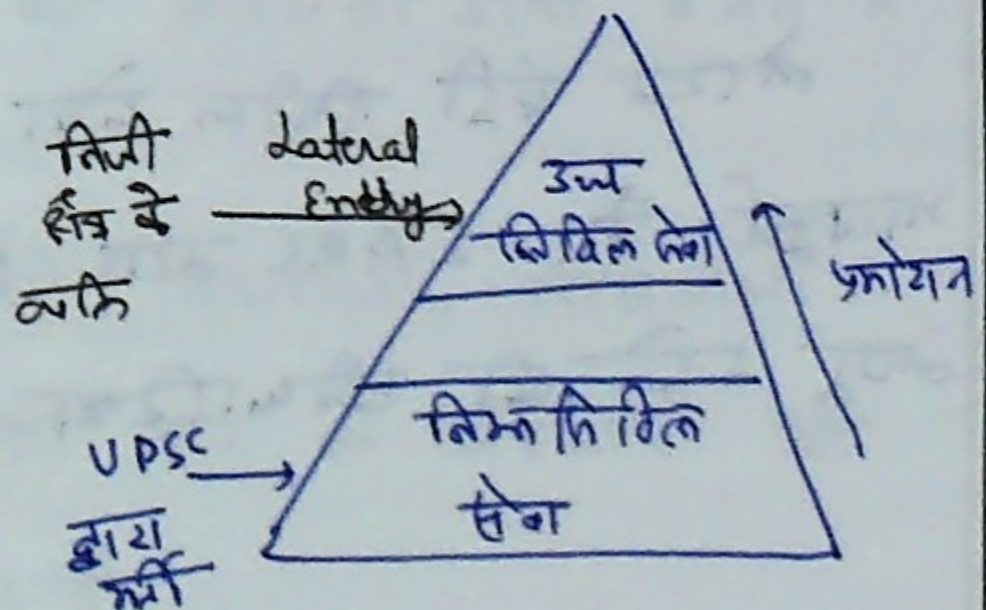 निजी
क्षेत्र के
व्यक्ति
Lateral
Entry
उच्च
सिविल सेवा
प्रमोशन
निम्न सिविल
सेवा
UPSC
द्वारा
भर्ती